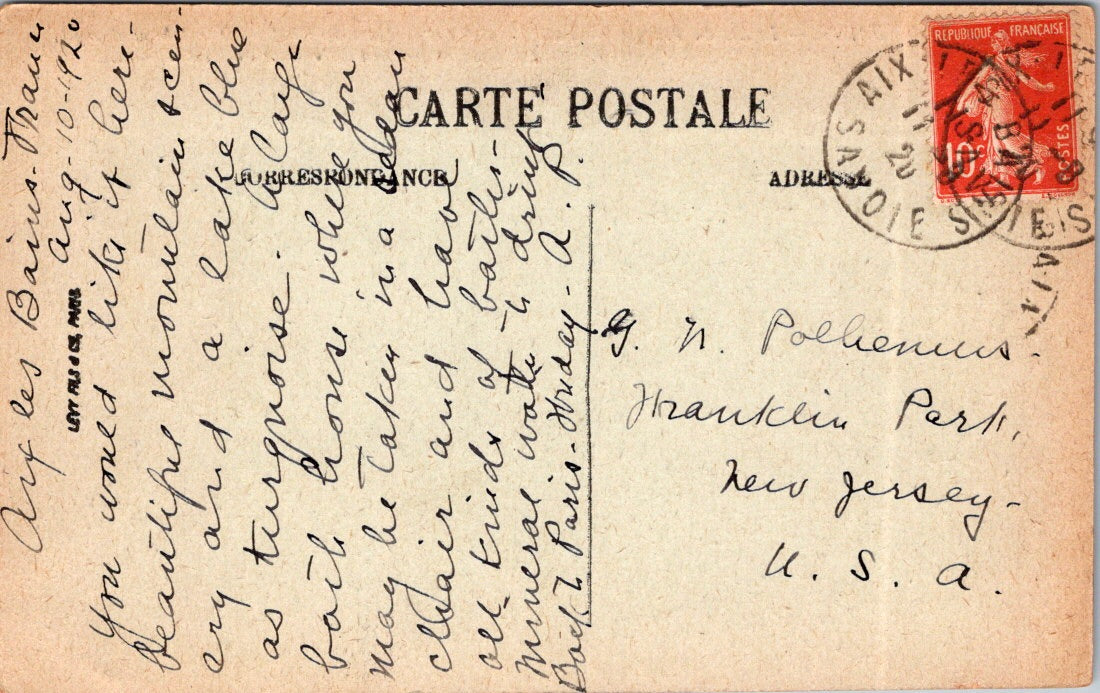 CARTE POSTALE
CORRESPONDANCE
ADRESSE
REPUBLIQUE FRANÇAISE
POSTES
AIX
SAVOIE
LEVY FILS & CIE, PARIS
Aix les Bains - France
Aug - 10 - 1920
You would like it here -
beautiful mountain scen-
ery and a lake blue
as turquoise. Large
bath house where you
may be taken in a sedan
chair and have
all kinds of baths -
mineral water to drink
Back to Paris - Friday - A. P.
G. N. Polhemus -
Franklin Park,
New Jersey -
U. S. A.